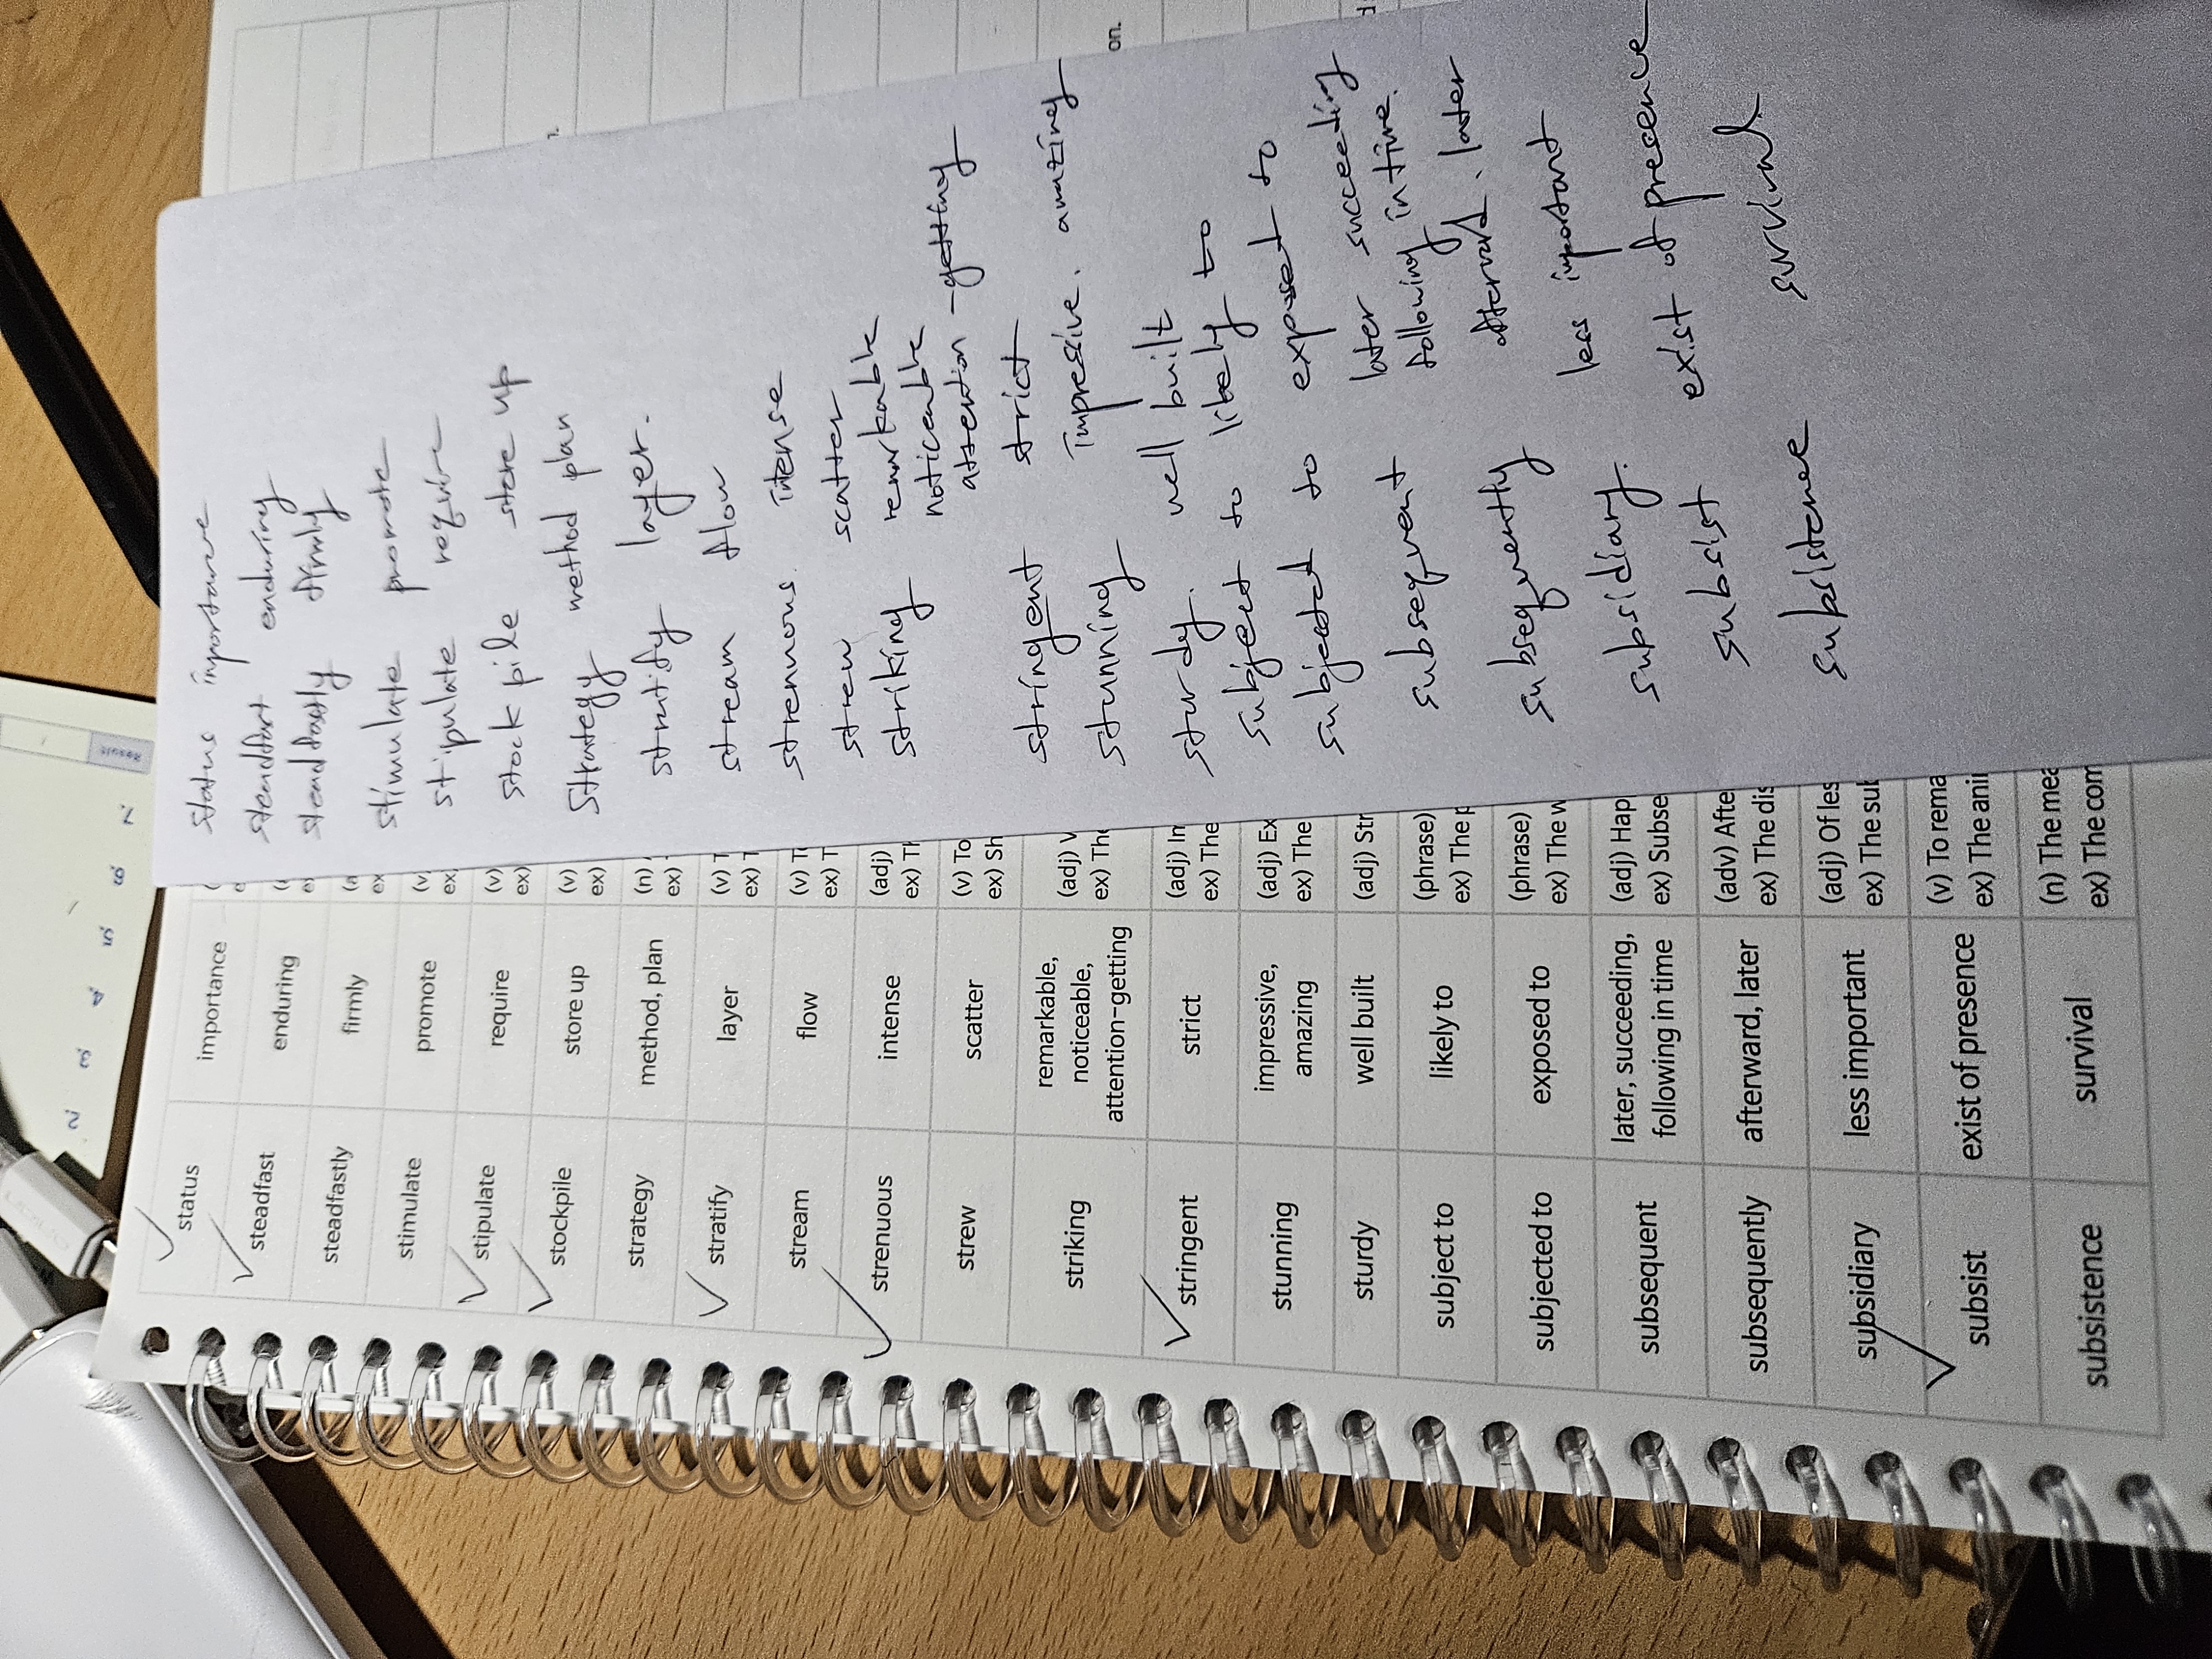 status importance
steadfast enduring
steadfastly firmly
stimulate promote
stipulate require
stock pile store up
strategy method plan
stratify layer.
stream flow
strenuous. intense
strew scatter
striking remarkable
noticeable
attention-getting
stringent strict
stunning impressive. amazing
sturdy. well built
subject to likely to
subjected to exposed to
subsequent later succeeding
following in time.
subsequently afterward. later
subsidiary. less important
subsist exist of presence
subsistence survival
status importance
steadfast enduring
steadfastly firmly
stimulate promote (v
ex
stipulate require (v)
ex)
stockpile store up (v)
ex)
strategy method, plan (n)
ex)
stratify layer (v) T
ex) T
stream flow (v) To
ex) T
strenuous intense (adj)
ex) Th
strew scatter (v) To
ex) Sh
striking remarkable,
noticeable,
attention-getting (adj) V
ex) The
stringent strict (adj) In
ex) The
stunning impressive,
amazing (adj) Ex
ex) The
sturdy well built (adj) Str
subject to likely to (phrase)
ex) The p
subjected to exposed to (phrase)
ex) The w
subsequent later, succeeding,
following in time (adj) Hap
ex) Subse
subsequently afterward, later (adv) Afte
ex) The dis
subsidiary less important (adj) Of les
ex) The sub
subsist exist of presence (v) To rema
ex) The ani
subsistence survival (n) The mea
ex) The com
on.
2. 3. 4. 5. 6. 7.
Result